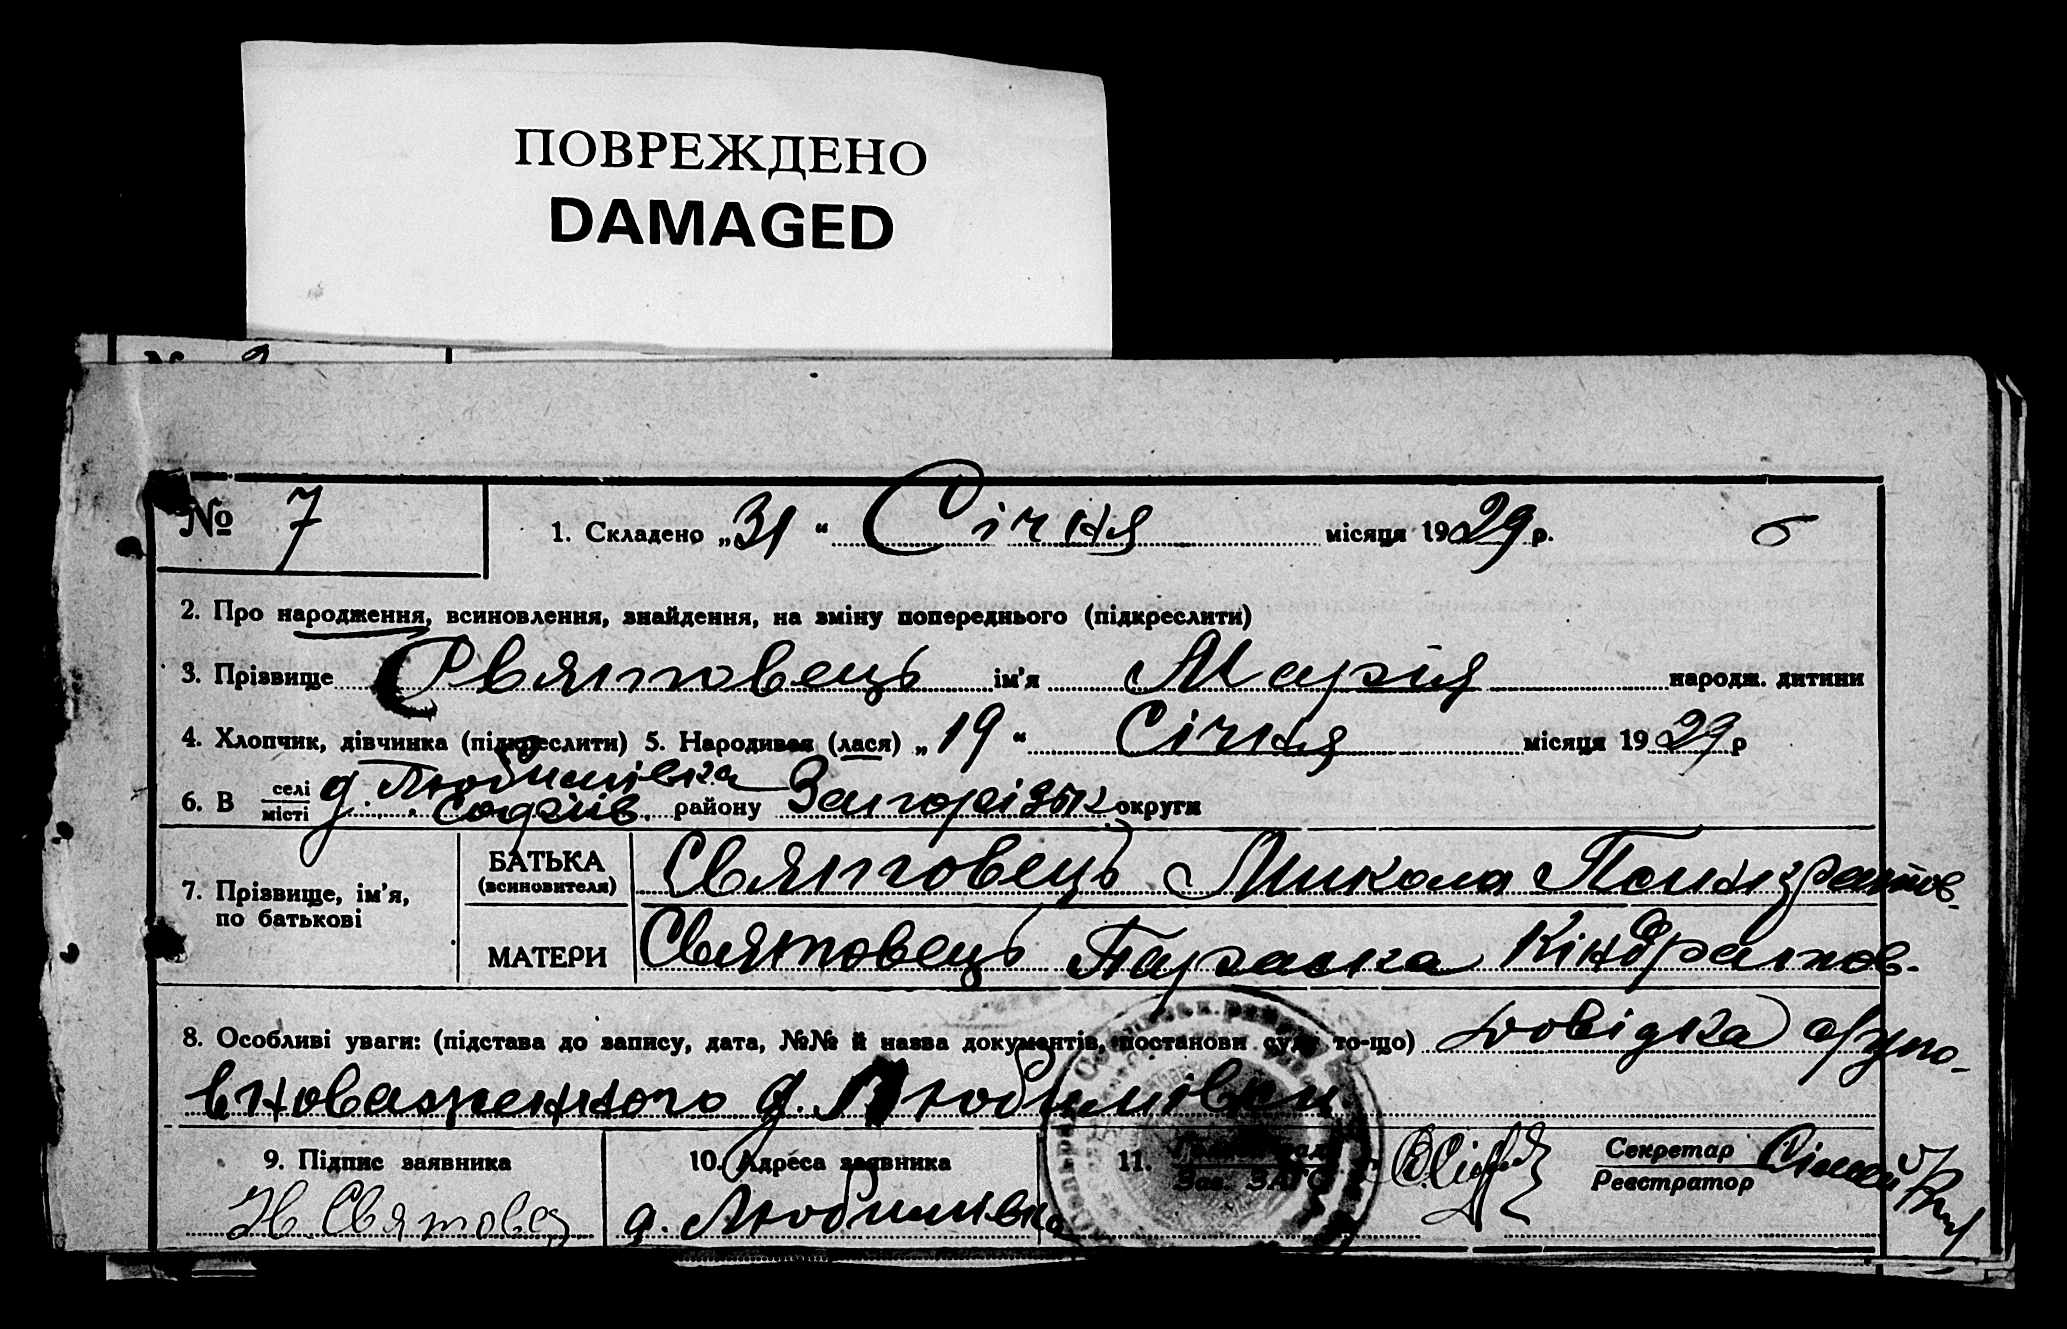 ПОВРЕЖДЕНО
DAMAGED
№ 7
1. Складено „31“ Січня місяця 1929 р.
2. Про народження, всиновлення, знайдення, на зміну попереднього (підкреслити)
3. Прізвище Святовець ім'я Марія народж. дитини
4. Хлопчик, дівчинка (підкреслити) 5. Народився (лася) „19“ Січня місяця 1929 р
6. В селі місті д. Любимівка Софіїв. району Запорізьк округи
7. Прізвище, ім'я, по батькові
БАТЬКА (всиновителя) Святовець Микола Панкратов.
МАТЕРИ Святовець Параска Кіндратов.
8. Особливі уваги: (підстава до запису, дата, №№ й назва документів, постанови суду то-що) довідка групо-
вповаженного д. Любимівки
9. Підпис заявника 10. Адреса заявника 11. Зав. ЗАГС Секретар
Реєстратор
Н. Святовец д. Любимівка